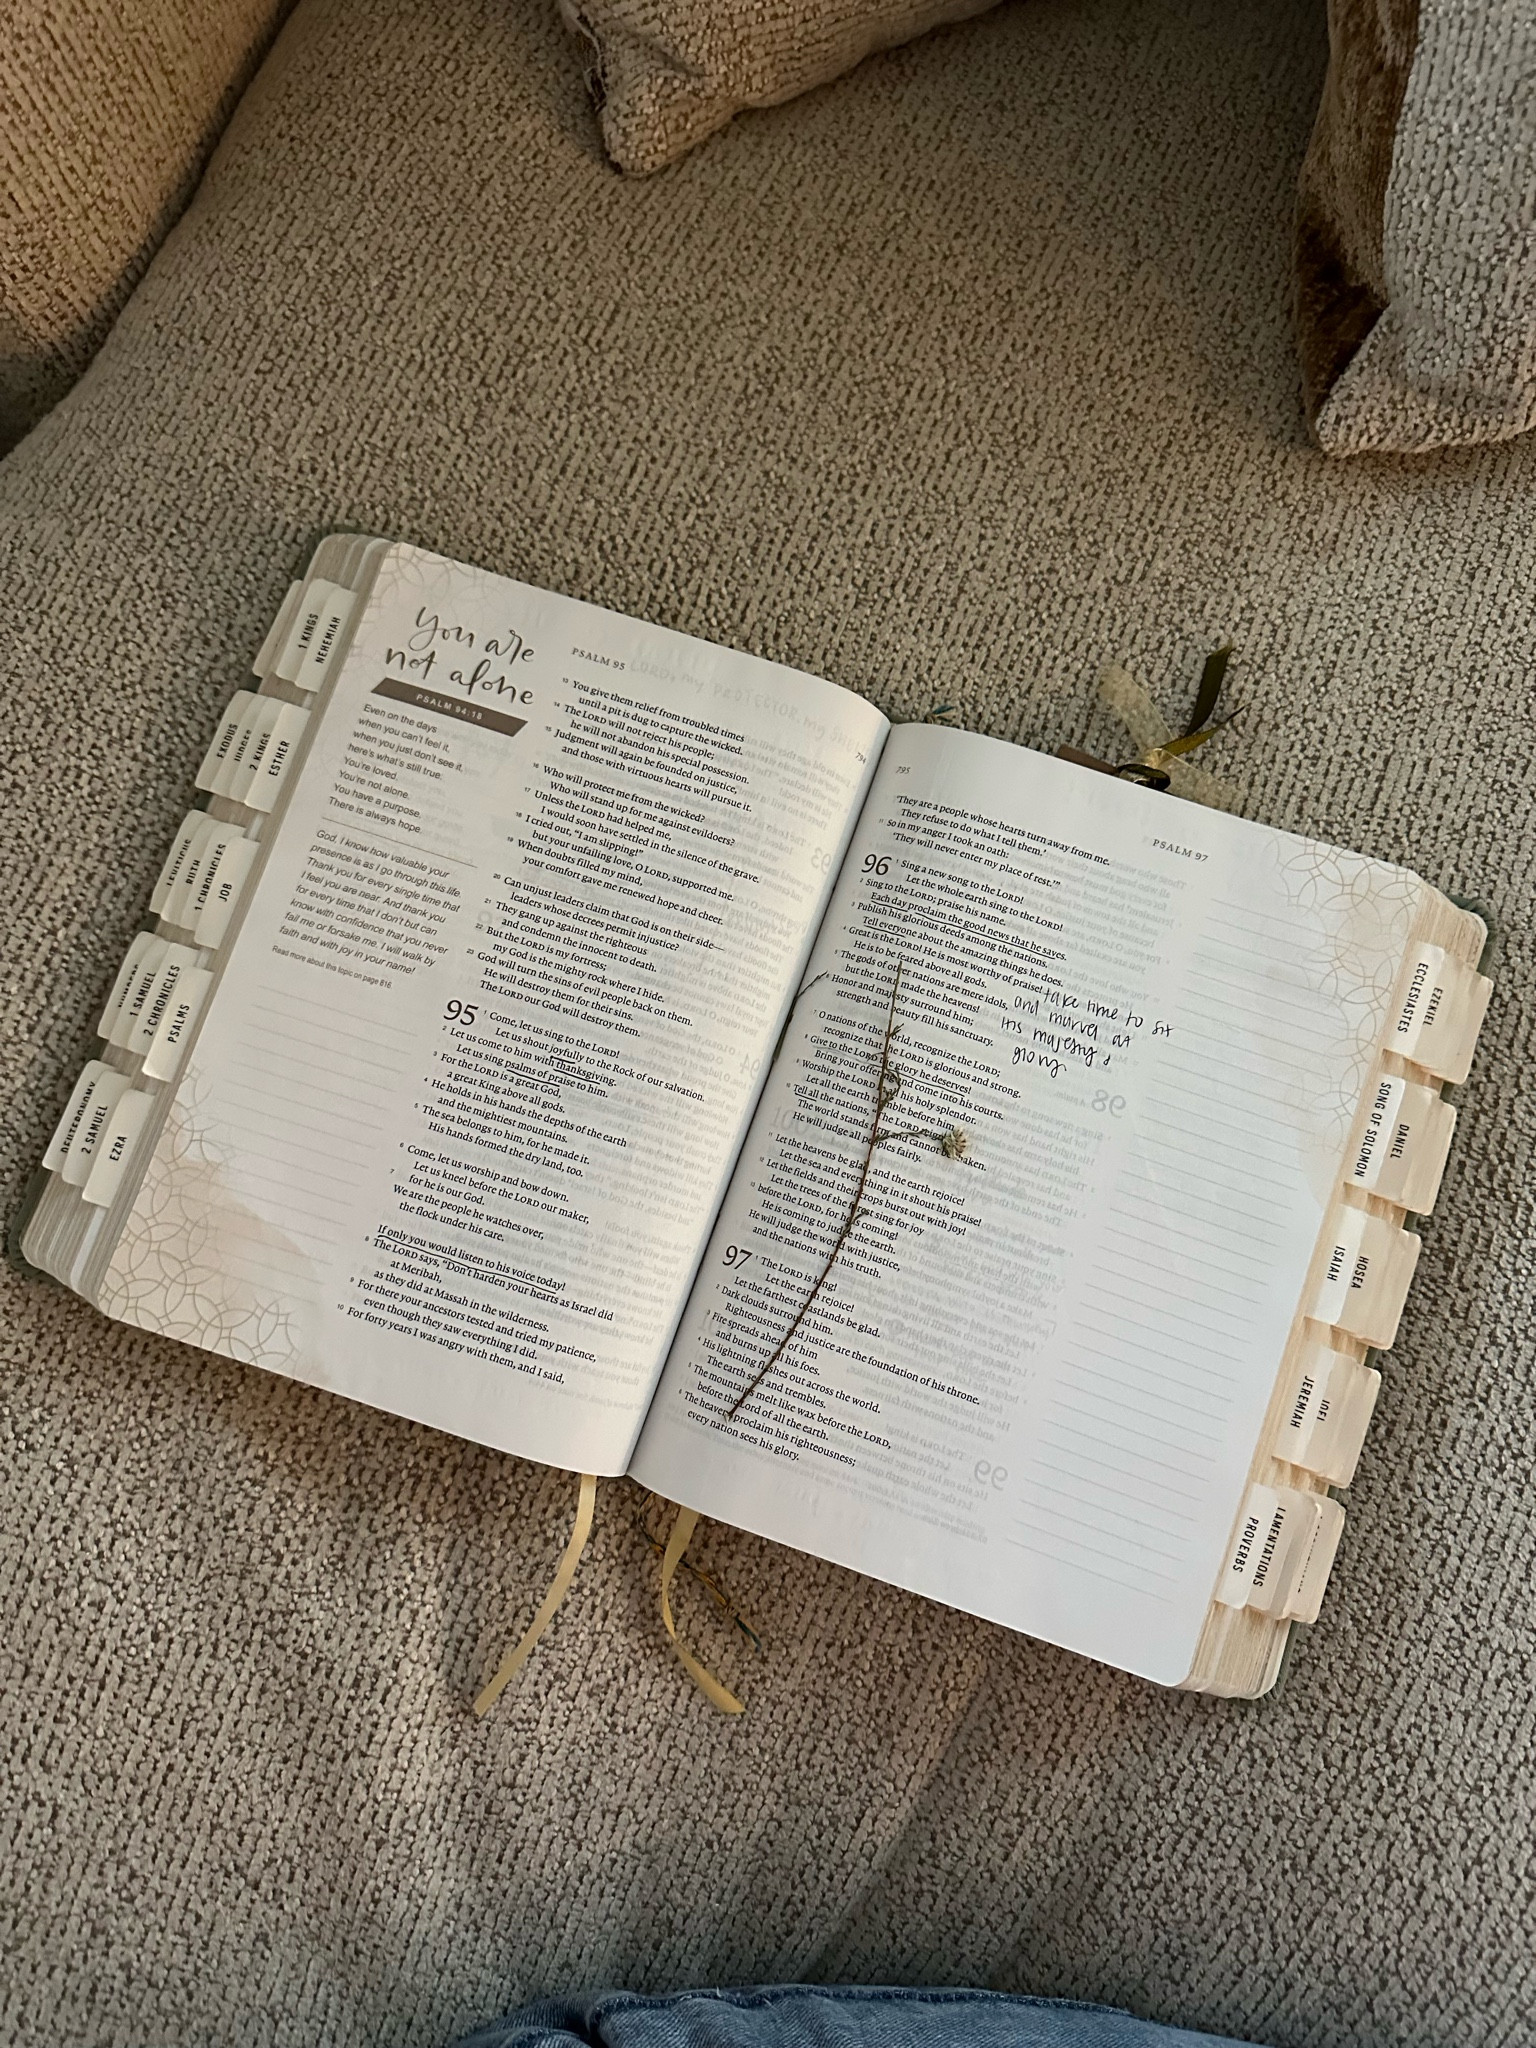 1 KINGS
NEHEMIAH
EXODUS
JUDGES
2 KINGS
ESTHER
LEVITICUS
RUTH
1 CHRONICLES
JOB
1 SAMUEL
2 CHRONICLES
PSALMS
DEUTERONOMY
2 SAMUEL
EZRA
you are
not alone
PSALM 94:18
Even on the days
when you can't feel it,
when you just don't see it,
here's what's still true:
You're loved.
You're not alone.
You have a purpose.
There is always hope.
God, I know how valuable your
presence is as I go through this life.
Thank you for every single time that
I feel you near. And thank you
for every time that I don't but can
know with confidence that you never
fail me or forsake me. I will walk by
faith and with joy in your name!
Read more about this topic on page 816.
PSALM 95
794
13 You give them relief from troubled times
until a pit is dug to capture the wicked.
14 The LORD will not reject his people;
he will not abandon his special possession.
15 Judgment will again be founded on justice,
and those with virtuous hearts will pursue it.
16 Who will protect me from the wicked?
Who will stand up for me against evildoers?
17 Unless the LORD had helped me,
I would soon have settled in the silence of the grave.
18 I cried out, "I am slipping!"
but your unfailing love, O LORD, supported me.
19 When doubts filled my mind,
your comfort gave me renewed hope and cheer.
20 Can unjust leaders claim that God is on their side—
leaders whose decrees permit injustice?
21 They gang up against the righteous
and condemn the innocent to death.
22 But the LORD is my fortress;
my God is the mighty rock where I hide.
23 God will turn the sins of evil people back on them.
He will destroy them for their sins.
The LORD our God will destroy them.
95 1 Come, let us sing to the LORD!
Let us shout joyfully to the Rock of our salvation.
2 Let us come to him with thanksgiving.
Let us sing psalms of praise to him.
3 For the LORD is a great God,
a great King above all gods.
4 He holds in his hands the depths of the earth
and the mightiest mountains.
5 The sea belongs to him, for he made it.
His hands formed the dry land, too.
6 Come, let us worship and bow down.
Let us kneel before the LORD our maker,
7 for he is our God.
We are the people he watches over,
the flock under his care.
If only you would listen to his voice today!
8 The LORD says, "Don't harden your hearts as Israel did
at Meribah,
as they did at Massah in the wilderness.
9 For there your ancestors tested and tried my patience,
even though they saw everything I did.
10 For forty years I was angry with them, and I said,
795
PSALM 97
'They are a people whose hearts turn away from me.
They refuse to do what I tell them.'
11 So in my anger I took an oath:
'They will never enter my place of rest.'"
96 1 Sing a new song to the LORD!
Let the whole earth sing to the LORD!
2 Sing to the LORD; praise his name.
Each day proclaim the good news that he saves.
3 Publish his glorious deeds among the nations.
Tell everyone about the amazing things he does.
4 Great is the LORD! He is most worthy of praise!
He is to be feared above all gods.
5 The gods of other nations are mere idols,
but the LORD made the heavens!
6 Honor and majesty surround him;
strength and beauty fill his sanctuary.
take time to sit
and marvel at
His majesty &
glory
7 O nations of the world, recognize the LORD;
recognize that the LORD is glorious and strong.
8 Give to the LORD the glory he deserves!
Bring your offering and come into his courts.
9 Worship the LORD in all his holy splendor.
Let all the earth tremble before him.
10 Tell all the nations, "The LORD reigns!"
The world stands firm and cannot be shaken.
He will judge all peoples fairly.
11 Let the heavens be glad, and the earth rejoice!
Let the sea and everything in it shout his praise!
12 Let the fields and their crops burst out with joy!
Let the trees of the forest sing for joy
13 before the LORD, for he is coming!
He is coming to judge the earth.
He will judge the world with justice,
and the nations with his truth.
97 1 The LORD is king!
Let the earth rejoice!
Let the farthest coastlands be glad.
2 Dark clouds surround him.
Righteousness and justice are the foundation of his throne.
3 Fire spreads ahead of him
and burns up all his foes.
4 His lightning flashes out across the world.
The earth sees and trembles.
5 The mountains melt like wax before the LORD,
before the Lord of all the earth.
6 The heavens proclaim his righteousness;
every nation sees his glory.
ECCLESIASTES
EZEKIEL
SONG OF SOLOMON
DANIEL
ISAIAH
HOSEA
JEREMIAH
JOEL
PROVERBS
LAMENTATIONS